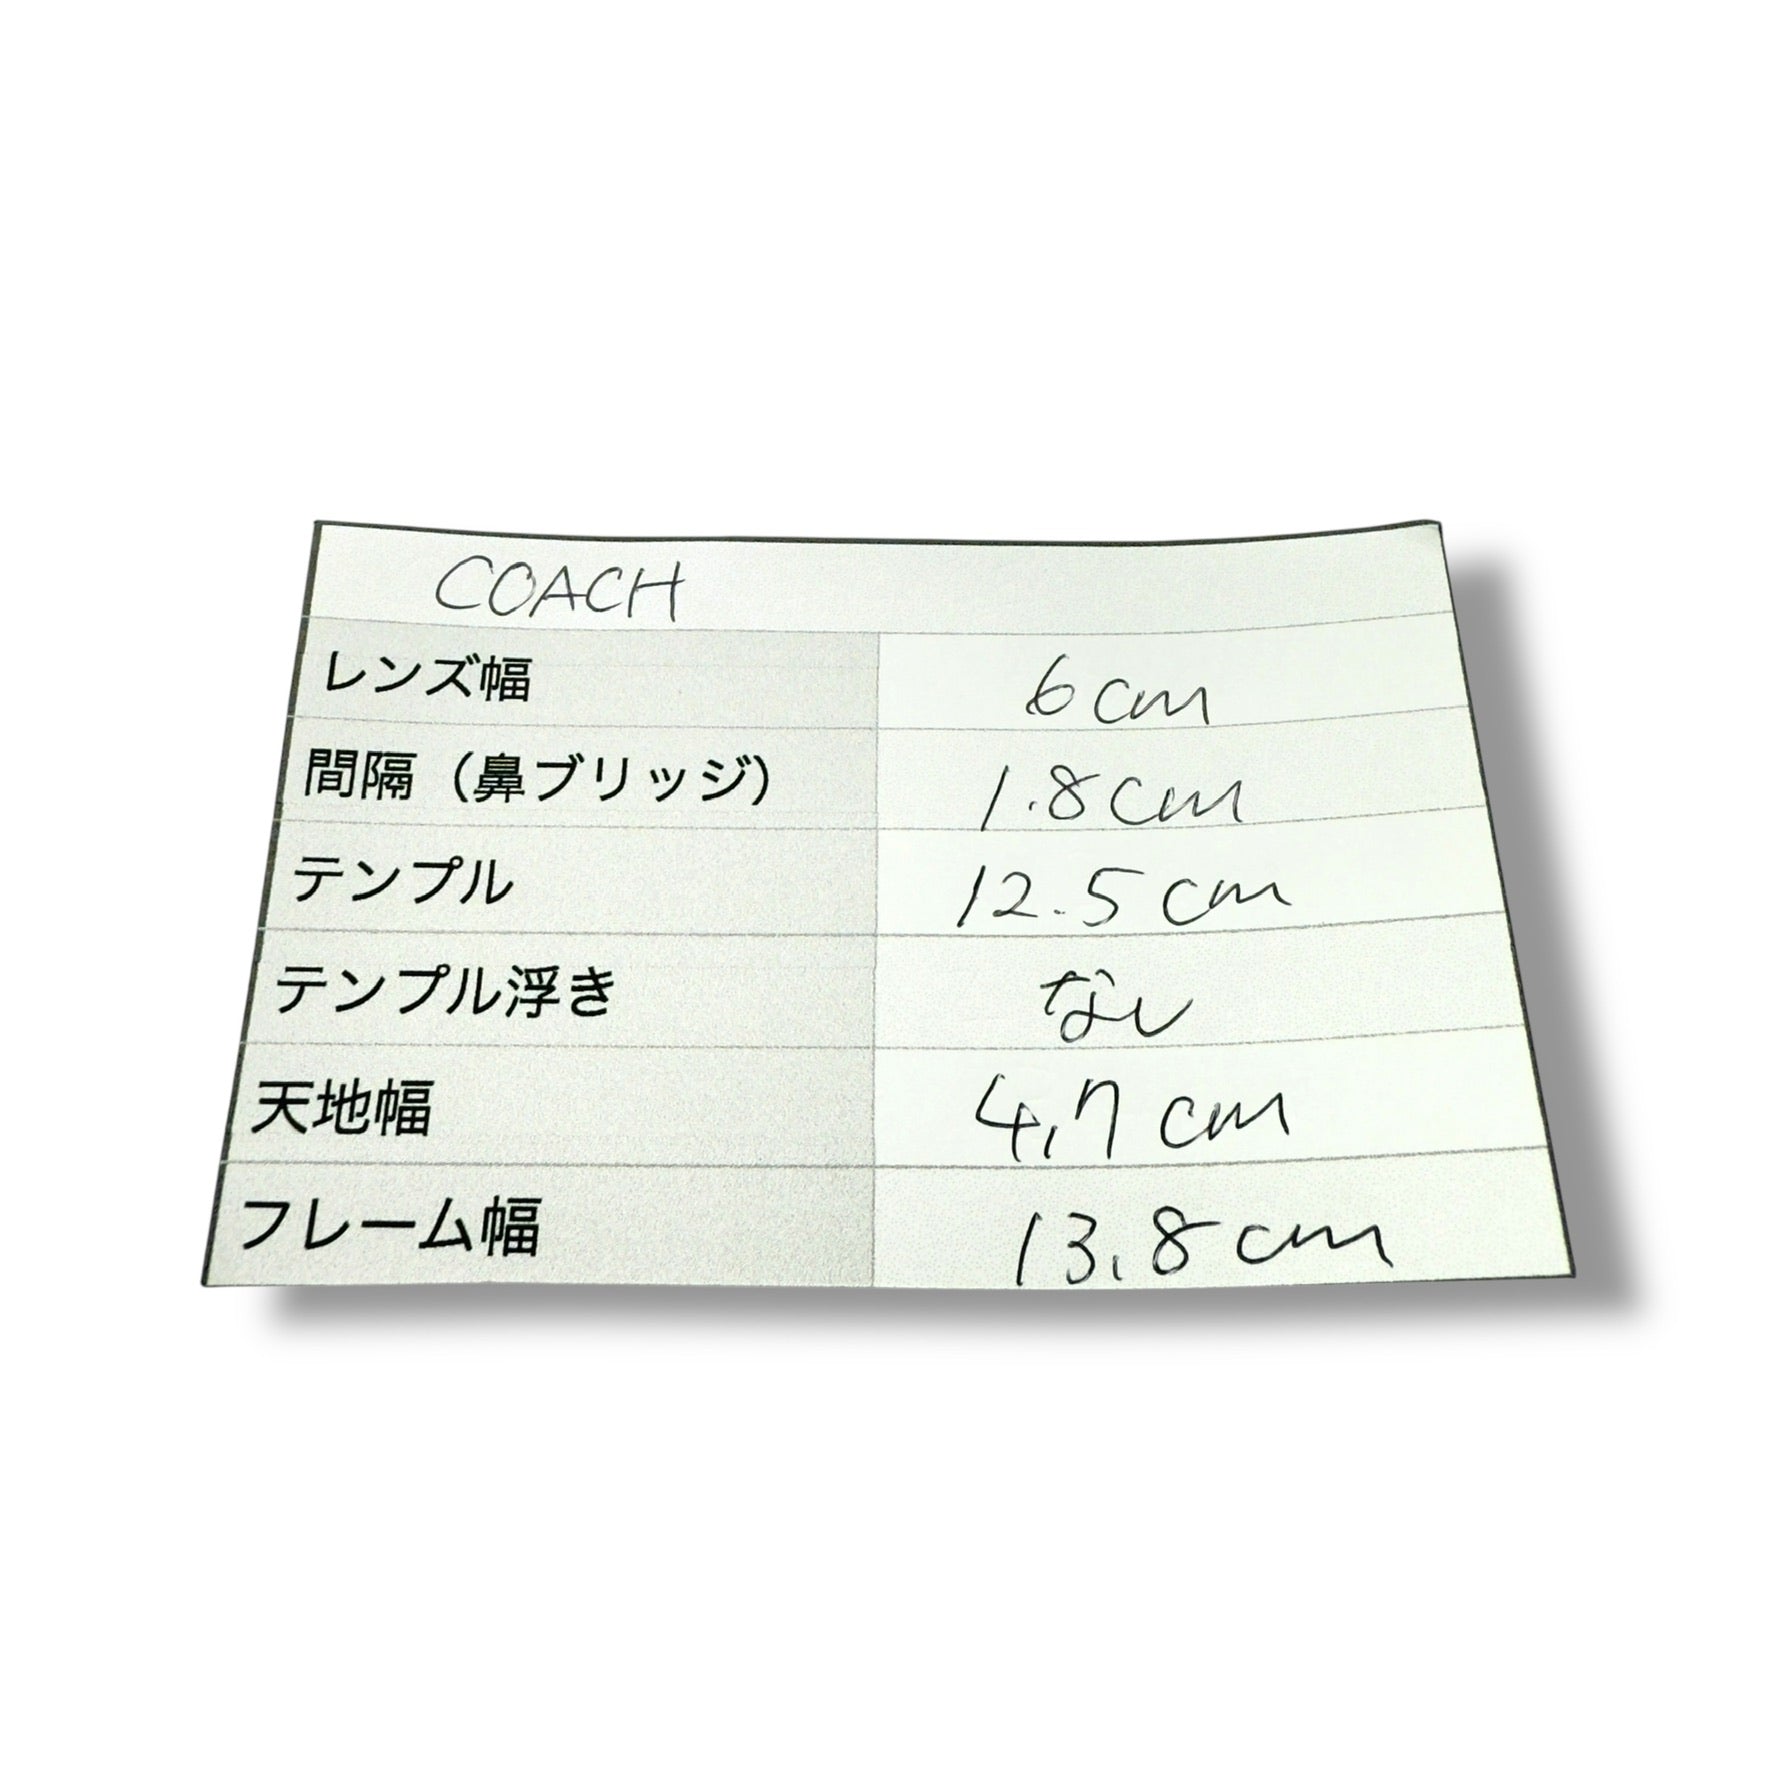 COACH
レンズ幅 6cm
間隔（鼻ブリッジ） 1.8cm
テンプル 12.5cm
テンプル浮き なし
天地幅 4.7cm
フレーム幅 13.8cm